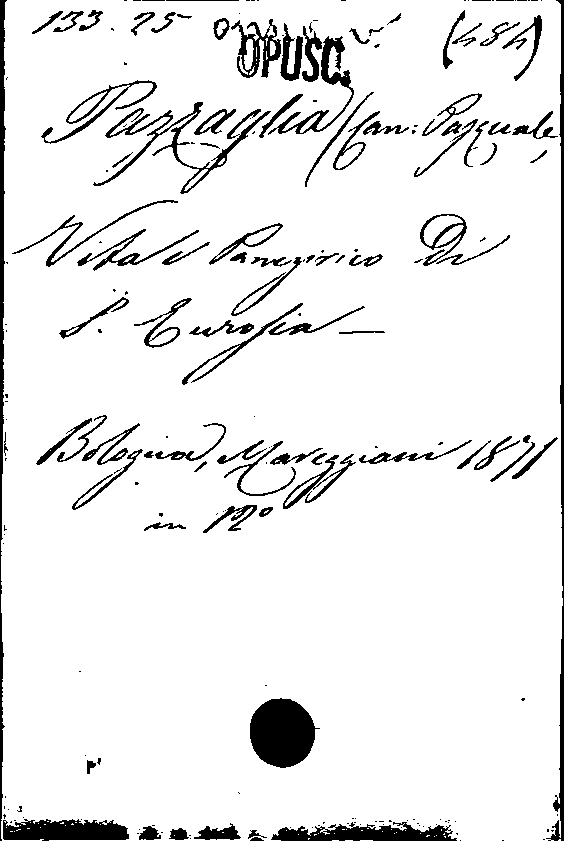 133. 25 (484)
OPUSC.
Pazzaglia (Can: Pasquale,
Vita e Panegirico Di
S. Eurosia —
Bologna, Mareggiani 1871
in 12º